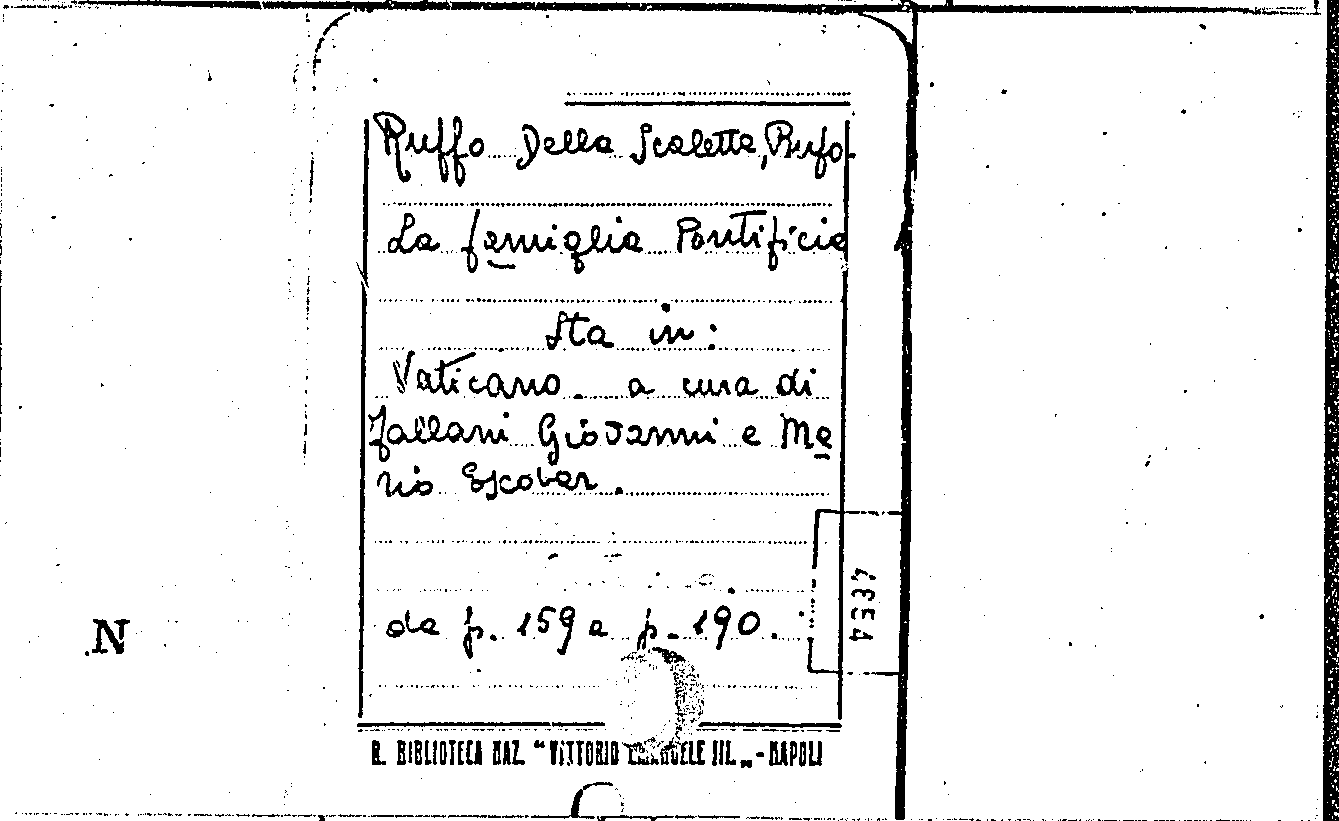 Ruffo Della Scaletta, Rufo.
La famiglia Pontificia
Sta in:
Vaticano. a cura di
Fallani Giovanni e Ma
rio Escobar.
da p. 159 a p. 190.
N
R. BIBLIOTECA NAZ. “VITTORIO EMANUELE III„ - NAPOLI